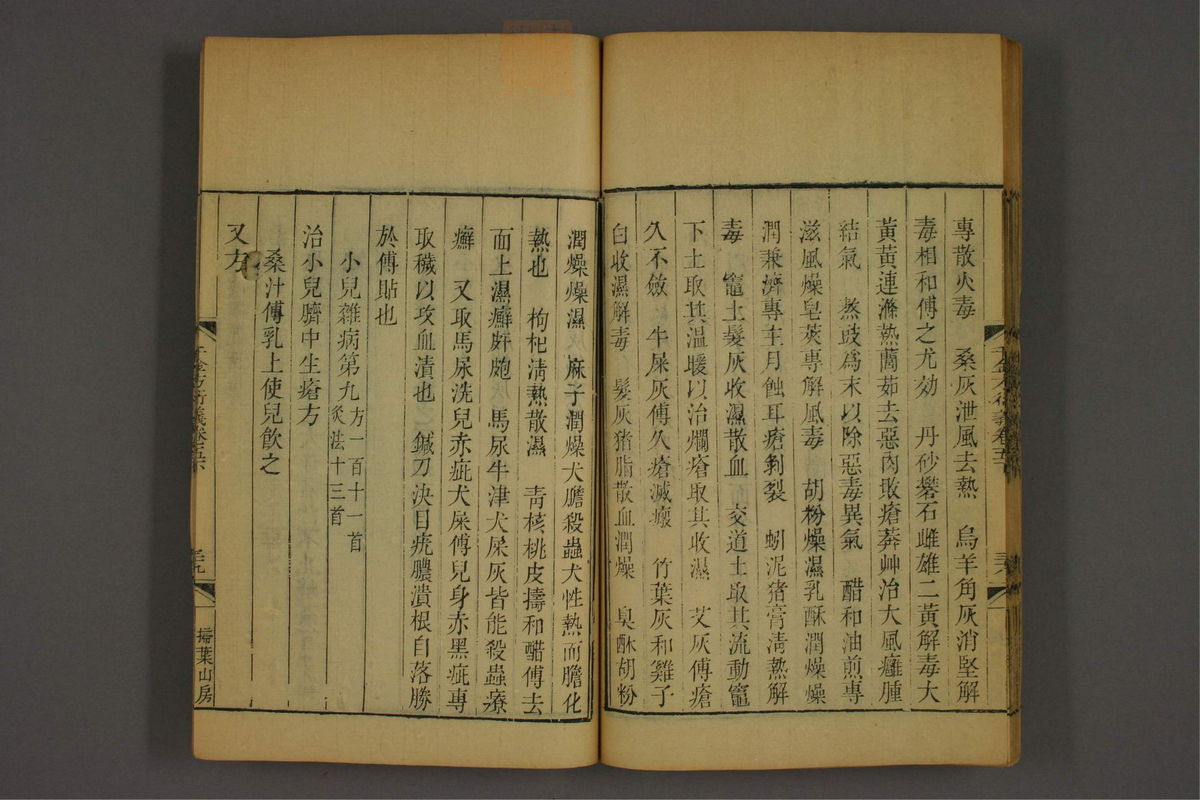 專散火毒　桑灰泄風去熱　烏羊角灰消堅解
毒相和傅之尤効　丹砂礬石雌雄二黃解毒大
黃黃連滌熱䕡茹去惡肉敗瘡莽艸治大風癰腫
結氣　熬鼓爲末以除惡毒異氣　醋和油煎專
滋風燥皂莢專解風毒　胡粉燥濕乳酥潤燥燥
潤兼濟專主月蝕耳瘡剝裂　蚓泥猪膏淸熱解
毒　竈土髮灰收濕散血　交道土取其流動竈
下土取其溫暖以治爛瘡取其收濕　艾灰傅瘡
久不斂　牛屎灰傅久瘡滅瘢　竹葉灰和雞子
白收濕解毒　髮灰猪脂散血潤燥　臭酥胡粉
潤燥燥濕　麻子潤燥犬膽殺蟲犬性熱而膽化
熱也　枸杞淸熱散濕　靑核桃皮擣和醋傅去
而上濕癬皯皰　馬尿牛津犬屎灰皆能殺蟲療
癬　又取馬尿洗兒赤疵犬屎傅兒身赤黑疵專
取穢以攻血漬也　鍼刀決目疣膿潰根自落勝
於傅貼也
小兒雜病第九方一百十一首
灸法十三首
治小兒臍中生瘡方
桑汁傅乳上使兒飲之
又方
千金方衍義卷五
掃葉山房